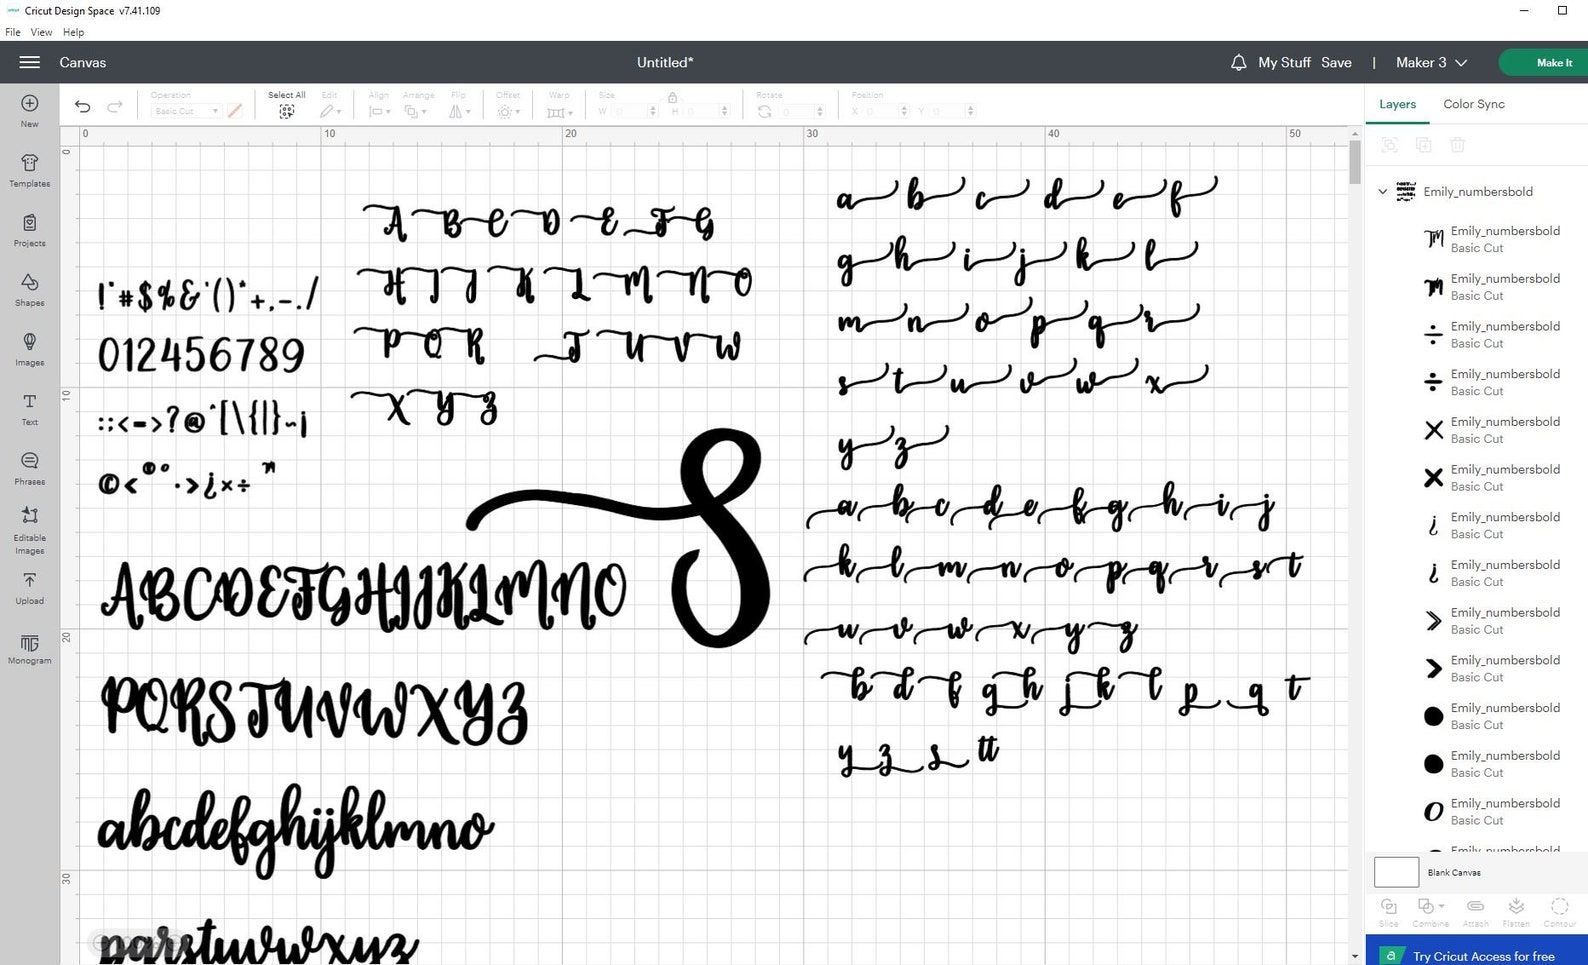 Cricut Design Space v7.41.109
File View Help
Canvas
Untitled*
My Stuff Save | Maker 3
Make It
New
Templates
Projects
Shapes
Images
Text
Phrases
Editable
Images
Upload
Monogram
Operation
Basic Cut
Select All
Edit
Align
Arrange
Flip
Offset
Warp
Size
W 0
H 0
Rotate
0
Position
X 0
Y 0
0 10 20 30 40 50
0
10
20
30
!"#$%&'()*+,-./
012456789
:;<=>?@^[\{|}~¡
©<®°·>¿×÷™
A B C D E F G
H I J K L M N O
P Q R T U V W
X Y Z
S
ABCDEFGHIJKLMNO
PQRSTUVWXYZ
abcdefghijklmno
pqrstuvwxyz
a b c d e f
g h i j k l
m n o p q r
s t u v w x
y z
a b c d e f g h i j
k l m n o p q r s t
u v w x y z
b d f g h j k l p q t
y z s tt
Layers Color Sync
Emily_numbersbold
Emily_numbersbold
Basic Cut
Emily_numbersbold
Basic Cut
Emily_numbersbold
Basic Cut
Emily_numbersbold
Basic Cut
Emily_numbersbold
Basic Cut
Emily_numbersbold
Basic Cut
Emily_numbersbold
Basic Cut
Emily_numbersbold
Basic Cut
Emily_numbersbold
Basic Cut
Emily_numbersbold
Basic Cut
Emily_numbersbold
Basic Cut
Emily_numbersbold
Basic Cut
Emily_numbersbold
Basic Cut
Emily_numbersbold
Blank Canvas
Slice Combine Attach Flatten Contour
a Try Cricut Access for free